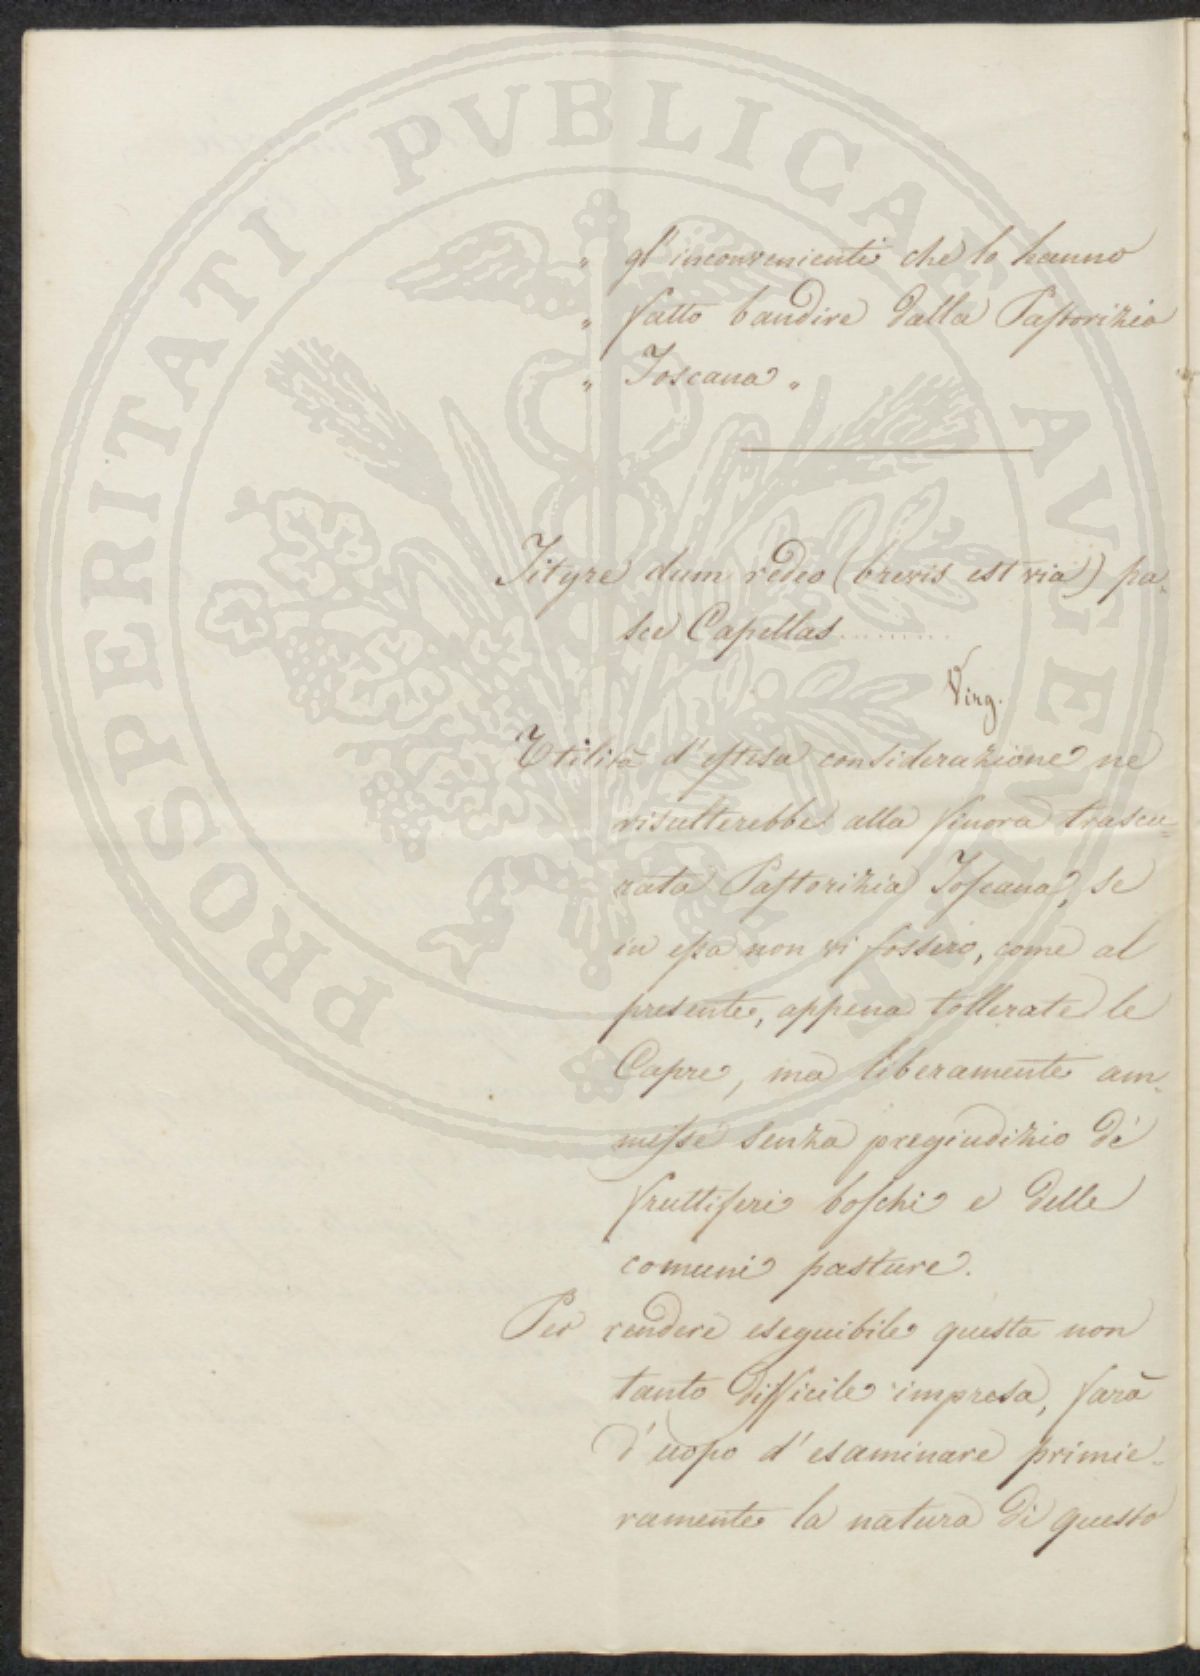 PROSPERITATI PVBLICAE AVGENDAE
„ gl'inconvenienti che lo hanno
„ fatto bandire dalla Pastorizia
„ Toscana „
Tityre dum redeo (brevis est via) pa-
sce Capellas .........
Virg.
Utilità d'estesa considerazione ne
risulterebbe alla finora trascu-
rata Pastorizia Toscana, se
in essa non vi fossero, come al
presente, appena tollerate le
Capre, ma liberamente am-
messe senza pregiudizio de'
fruttiferi boschi e delle
comuni pasture.
Per rendere eseguibile questa non
tanto difficile impresa, farà
d'uopo d'esaminare primie-
ramente la natura di questo